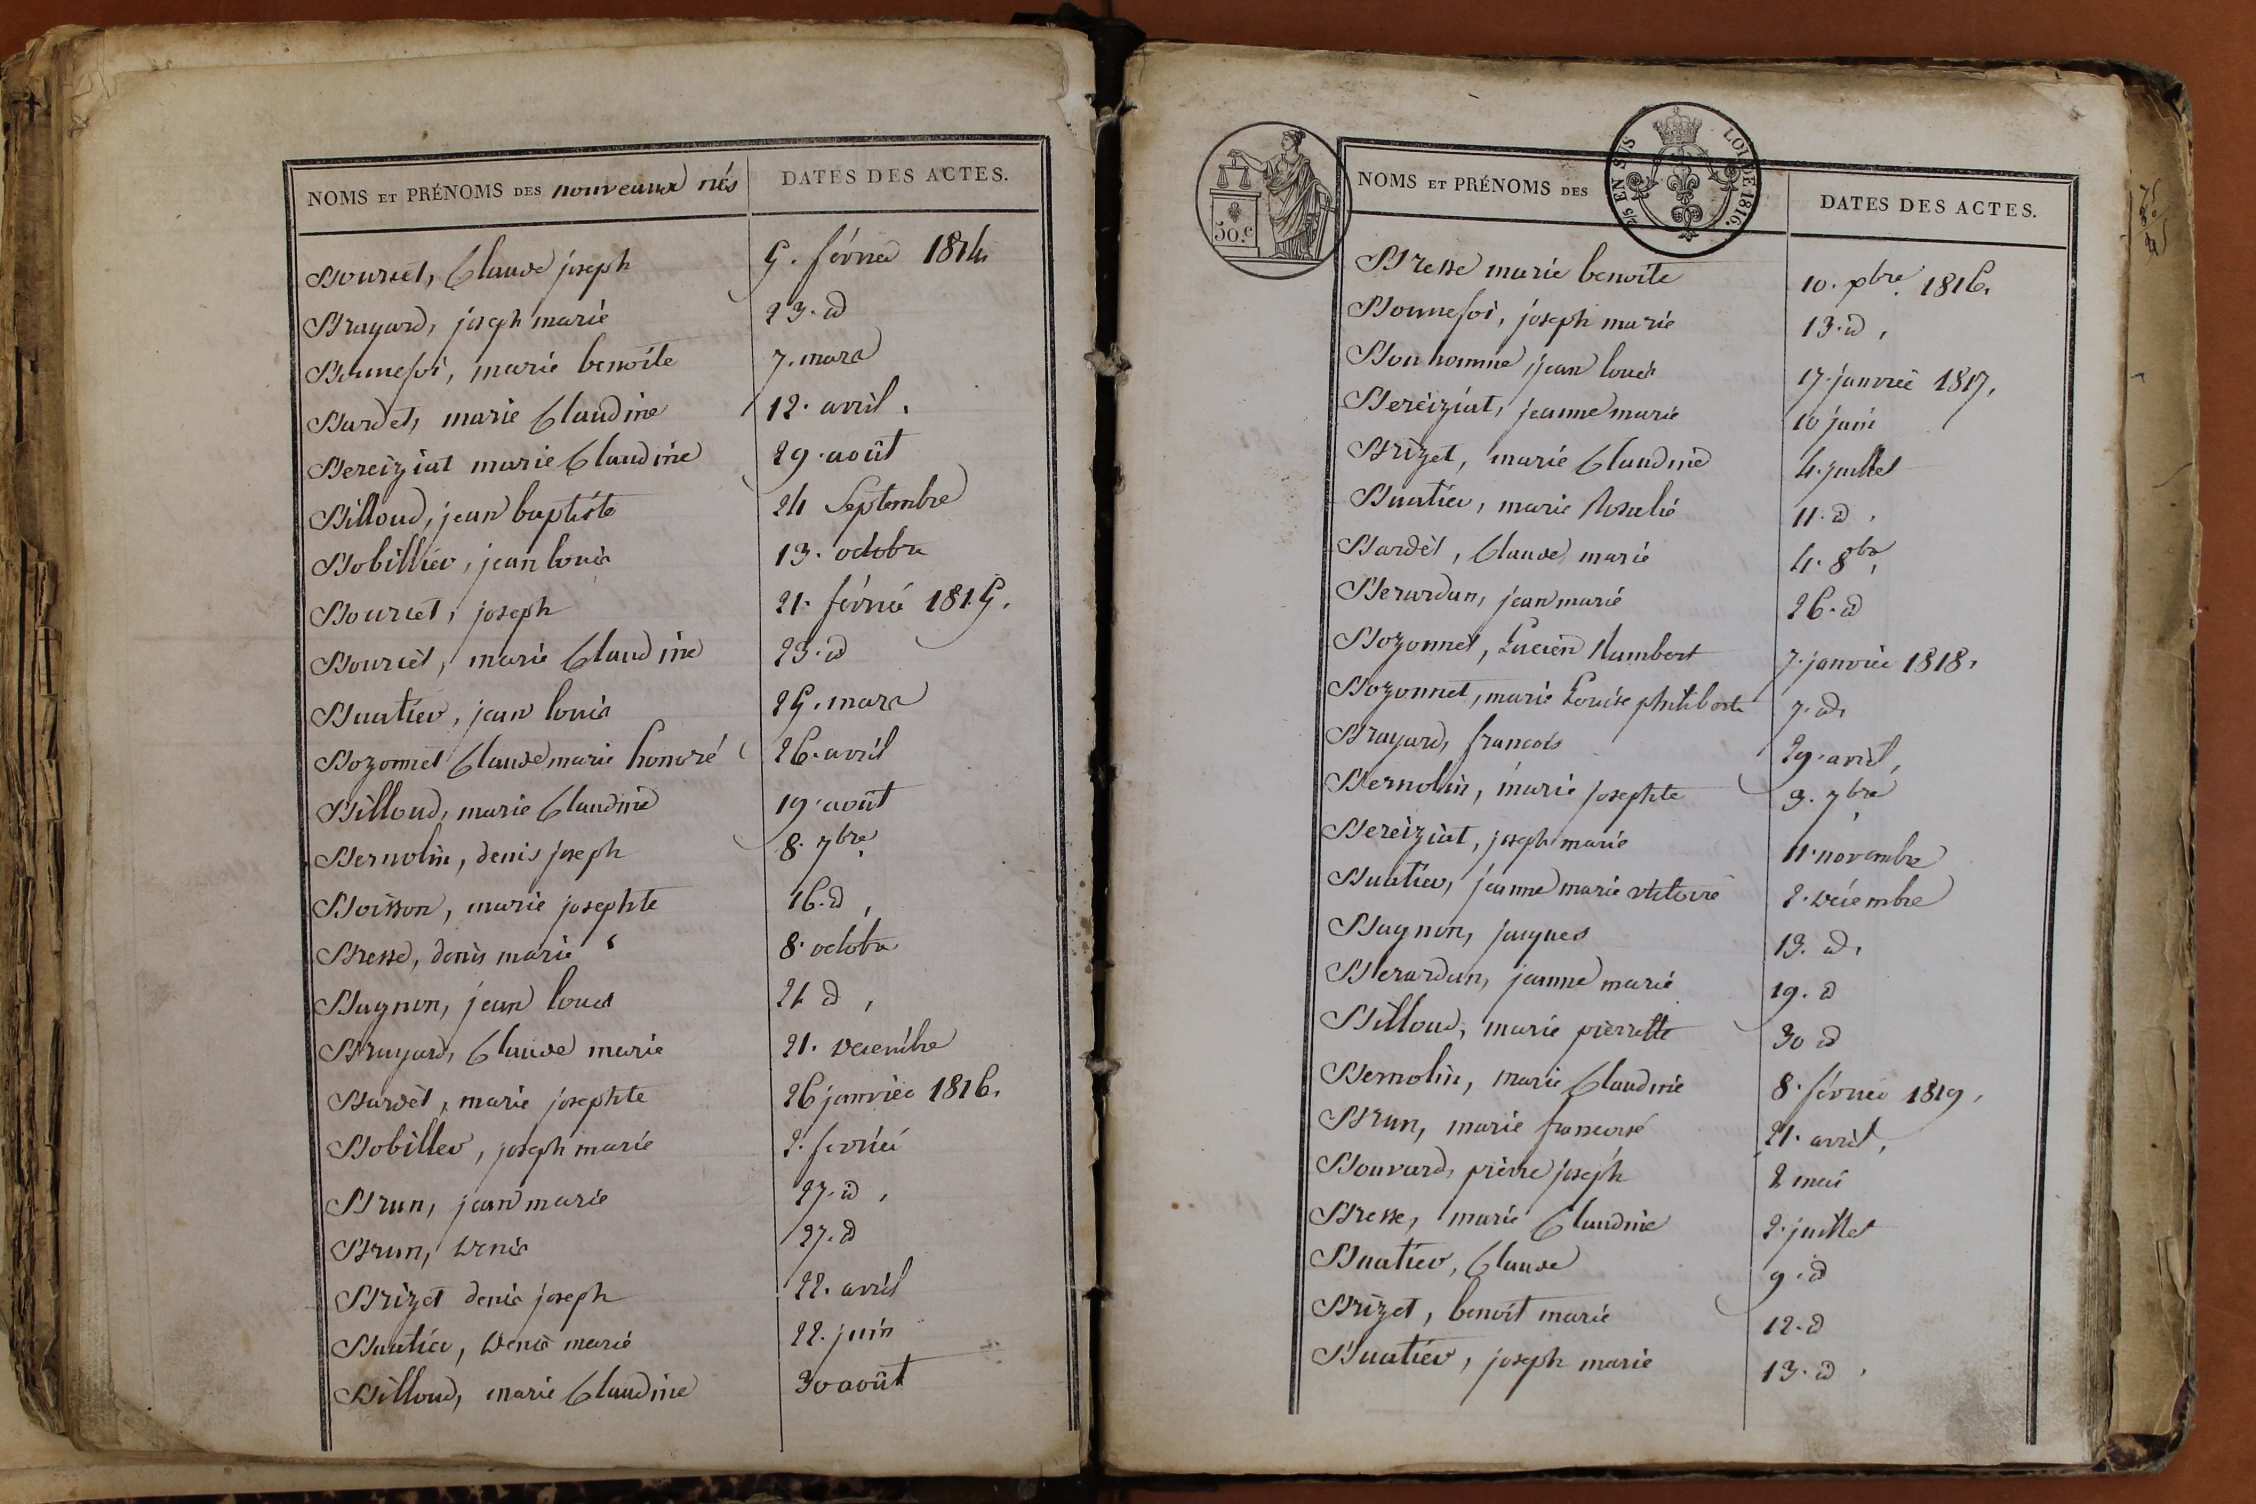 NOMS ET PRÉNOMS DES nouveaux nés DATES DES ACTES.
Bourcet, Claude joseph 5. février 1814
Brayard, joseph marie 23. d
Bonnefoi, marie benoite 7. mars
Bardet, marie Claudine 12. avril.
Bereiziat marie Claudine 29. août
Billoud, jean baptiste 24 Septembre
Bobillier, jean louis 13. octobre
Bourcet, joseph 21. février 1815.
Bourcet, marie Claudine 23. d
Buatier, jean louis 25. mars
Bozonnet Claude marie honoré 26. avril
Billoud, marie Claudine 19. août
Bernolin, denis joseph 8. 7bre
Boisson, marie josephte 16. d,
Bresse, denis marie 8. octobre
Bagnon, jean louis 21 d,
Brayard, Claude marie 21. décembre
Bardet, marie josephte 26 janvier 1816.
Bobiller, joseph marie 2. février
Brun, jean marie 27. d,
Brun, denis 27. d
Brizet denis joseph 22. avril
Buatier, denis marie 22. juin
Billoud, marie Claudine 30 août
50.c
2/5 EN SUS LOI DE 1816.
NOMS ET PRÉNOMS DES DATES DES ACTES.
Bresse marie benoite 10. xbre. 1816.
Bonnefoi, joseph marie 13. d,
Bonhomme, jean louis 17. janvier 1817.
Bereiziat, jeanne marie 10 juin
Brizet, marie Claudine 4. juillet
Buatier, marie Rosalie 11. d,
Bardet, Claude marie 4. 8bre,
Berardan, jean marie 26. d
Bozonnet, Lucien humbert 7. janvier 1818.
Bozonnet, marie Louise philiberte 7. d.
Brayard, francois 29. avril,
Bernolin, marie josephte 3. 7bre
Bereiziat, joseph marie 11. novembre
Buatier, jeanne marie victoire 2. décembre
Bagnon, jacques 13. d.
Berardan, jeanne marie 19. d
Billoud, marie pierrette 30 d
Bernolin, marie Claudine 8. février 1819,
Brun, marie francoise 21. avril,
Bouvard, pierre joseph 2 mai
Bresse, marie Claudine 2. juillet
Buatier, Claude 9. d
Brizet, benoit marie 12. d
Buatier, joseph marie 13. d,